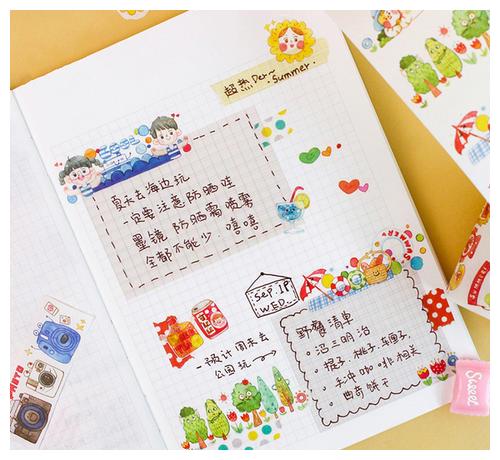 超热Der~
Summer.
夏天去海边玩
一定要注意防晒哇
墨镜 防晒霜 喷雾
全都不能少. 嘻嘻
Sep.19
WED.
一预计周末去
公园玩
野餐清单
。沼三明治
。提子 桃子 车厘子
。手冲咖啡相关
。曲奇饼干
PHOTO
SUMMER
Sweet